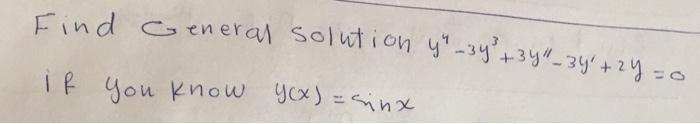 Find General solution y⁴-3y³+3y"-3y'+2y=0
if you know y(x)=sinx